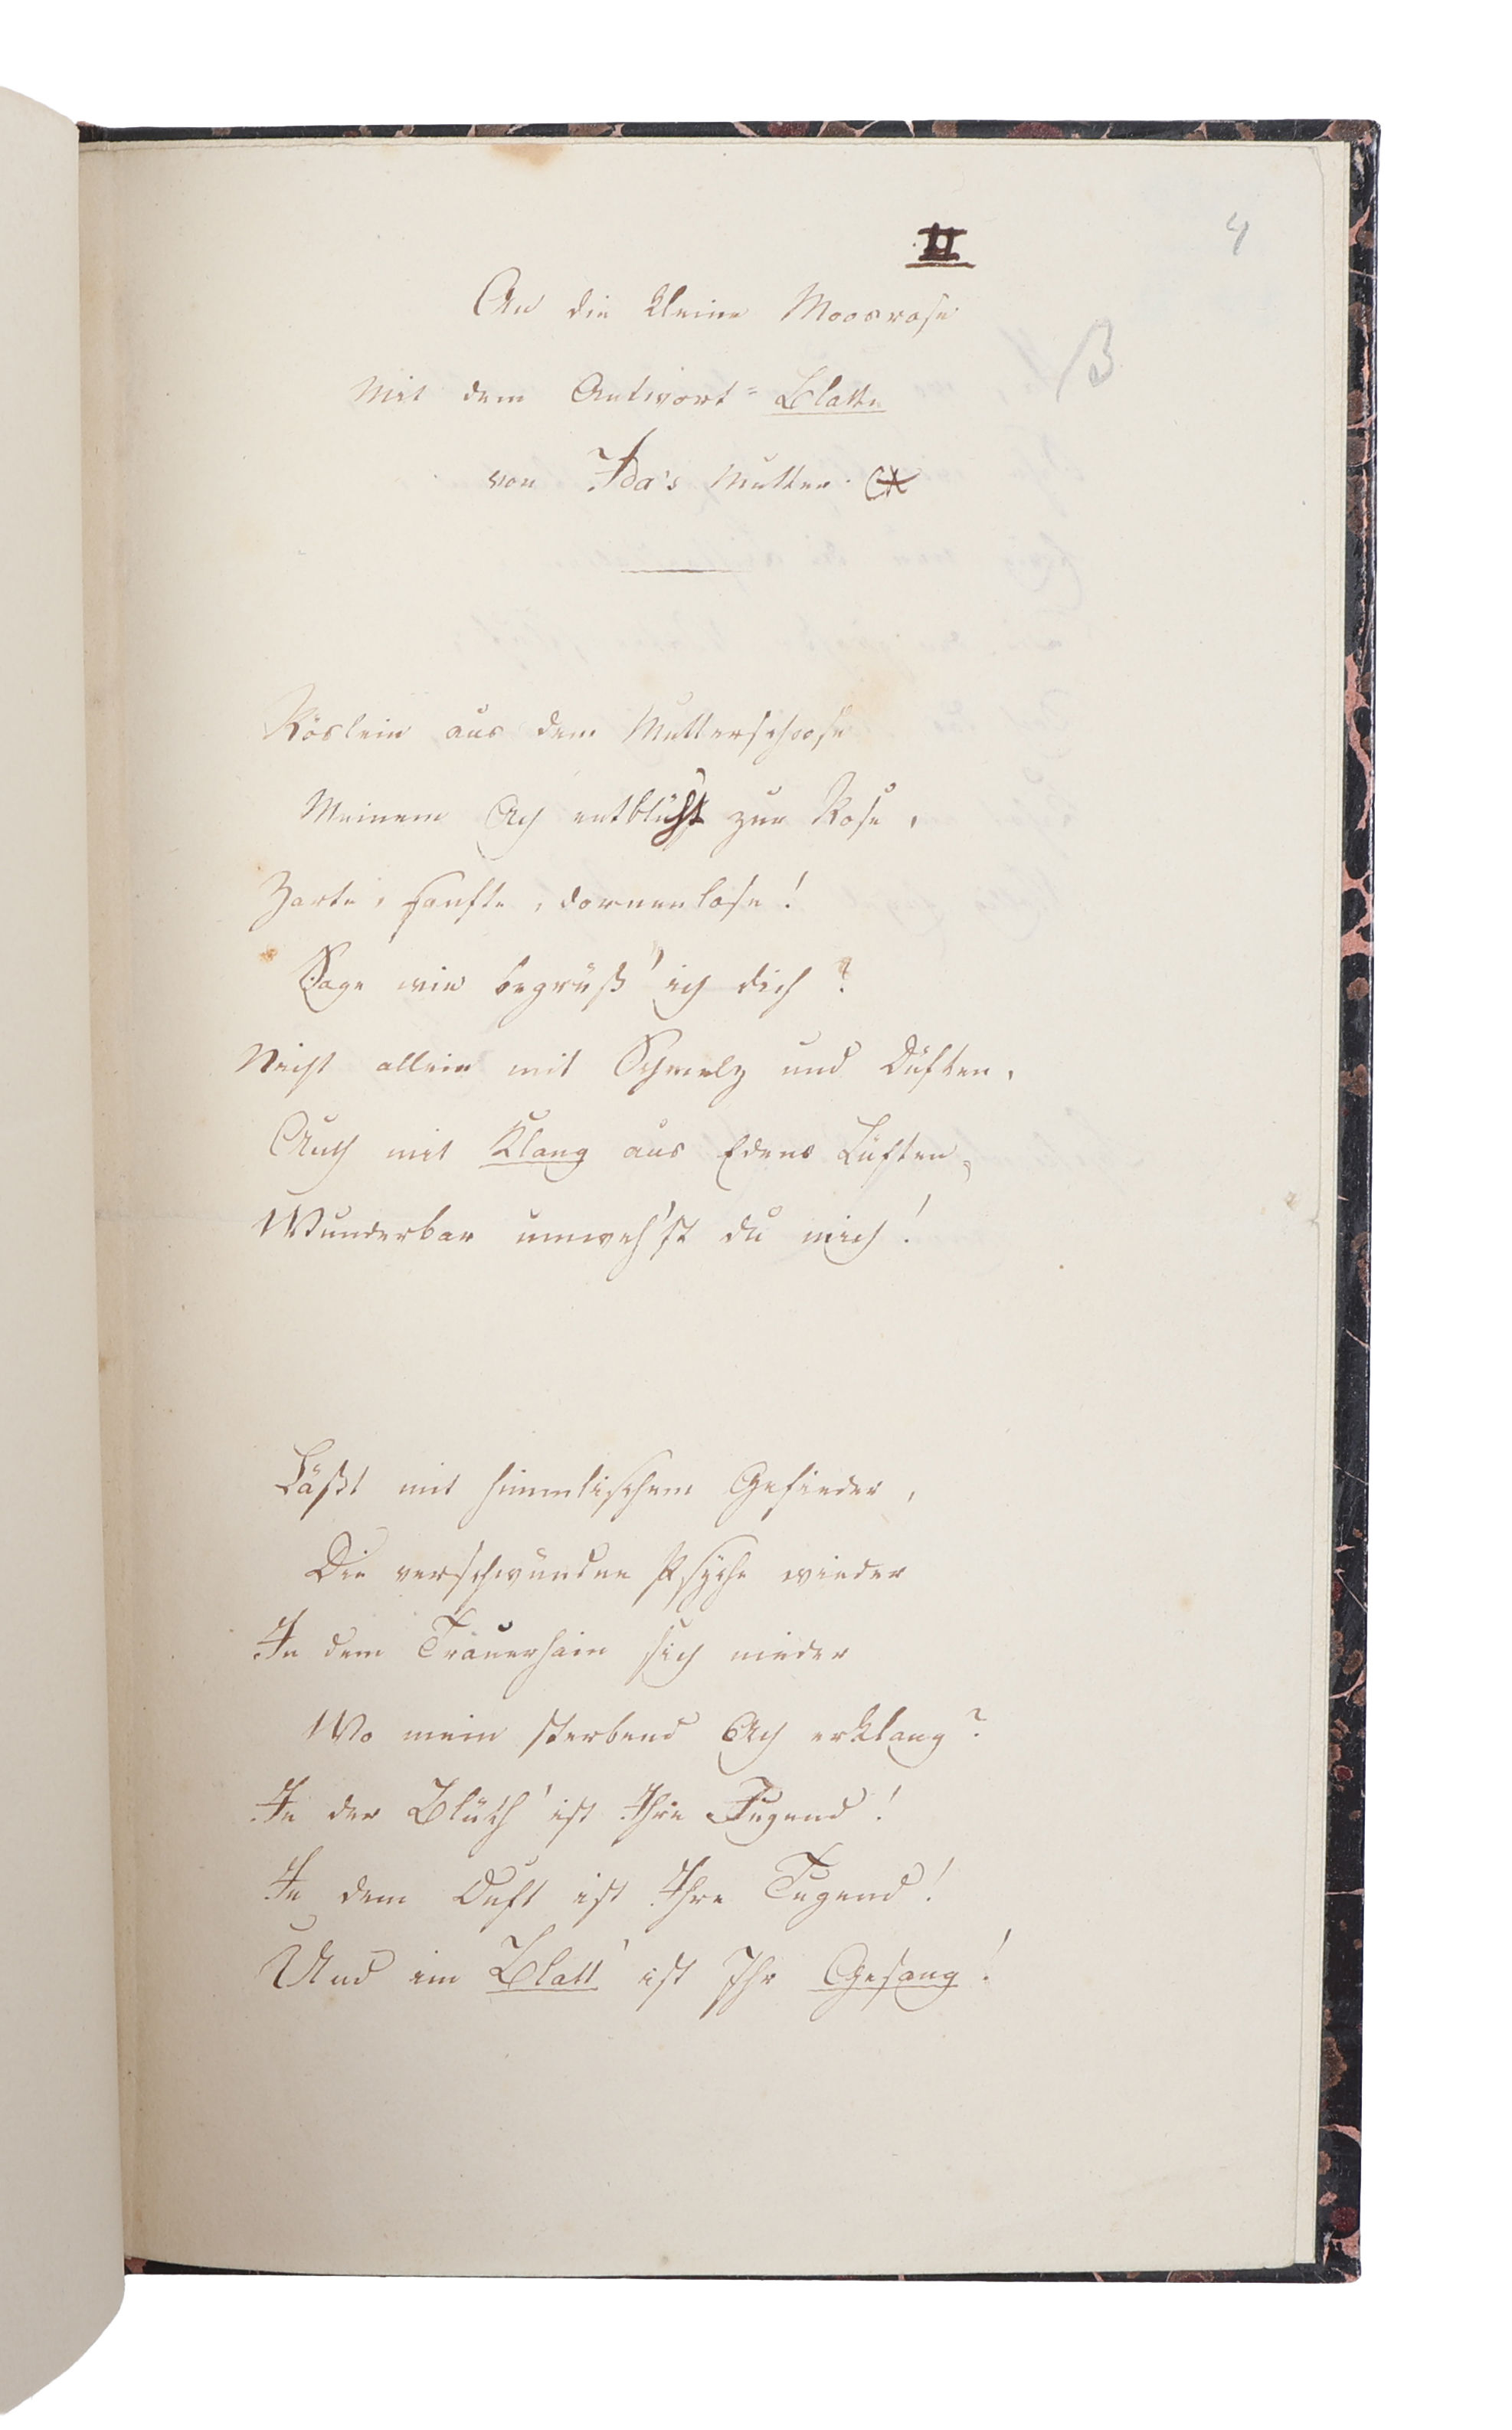 II
4
An die kleine Moosrose
B
Mit dem Antwort=Blatte
von Ida's Mutter. (*
Röslein aus dem Mutterschoose
Meinem Ach entblüht zur Rose,
Zarte, sanfte, dornenlose!
Sage wie begrüß' ich dich?
Nicht allein mit Schmelz und Düften,
Auch mit Klang aus Edens Lüften,
Wunderbar umweh'st du mich!
Läßt mit himmlischem Gefieder,
Die verschwundne Psyche wieder
In dem Trauerhain sich nieder
Wo mein sterbend Ach erklang?
In der Blüth' ist Ihre Jugend!
In dem Duft ist Ihre Tugend!
Und im Blatt' ist Ihr Gesang!